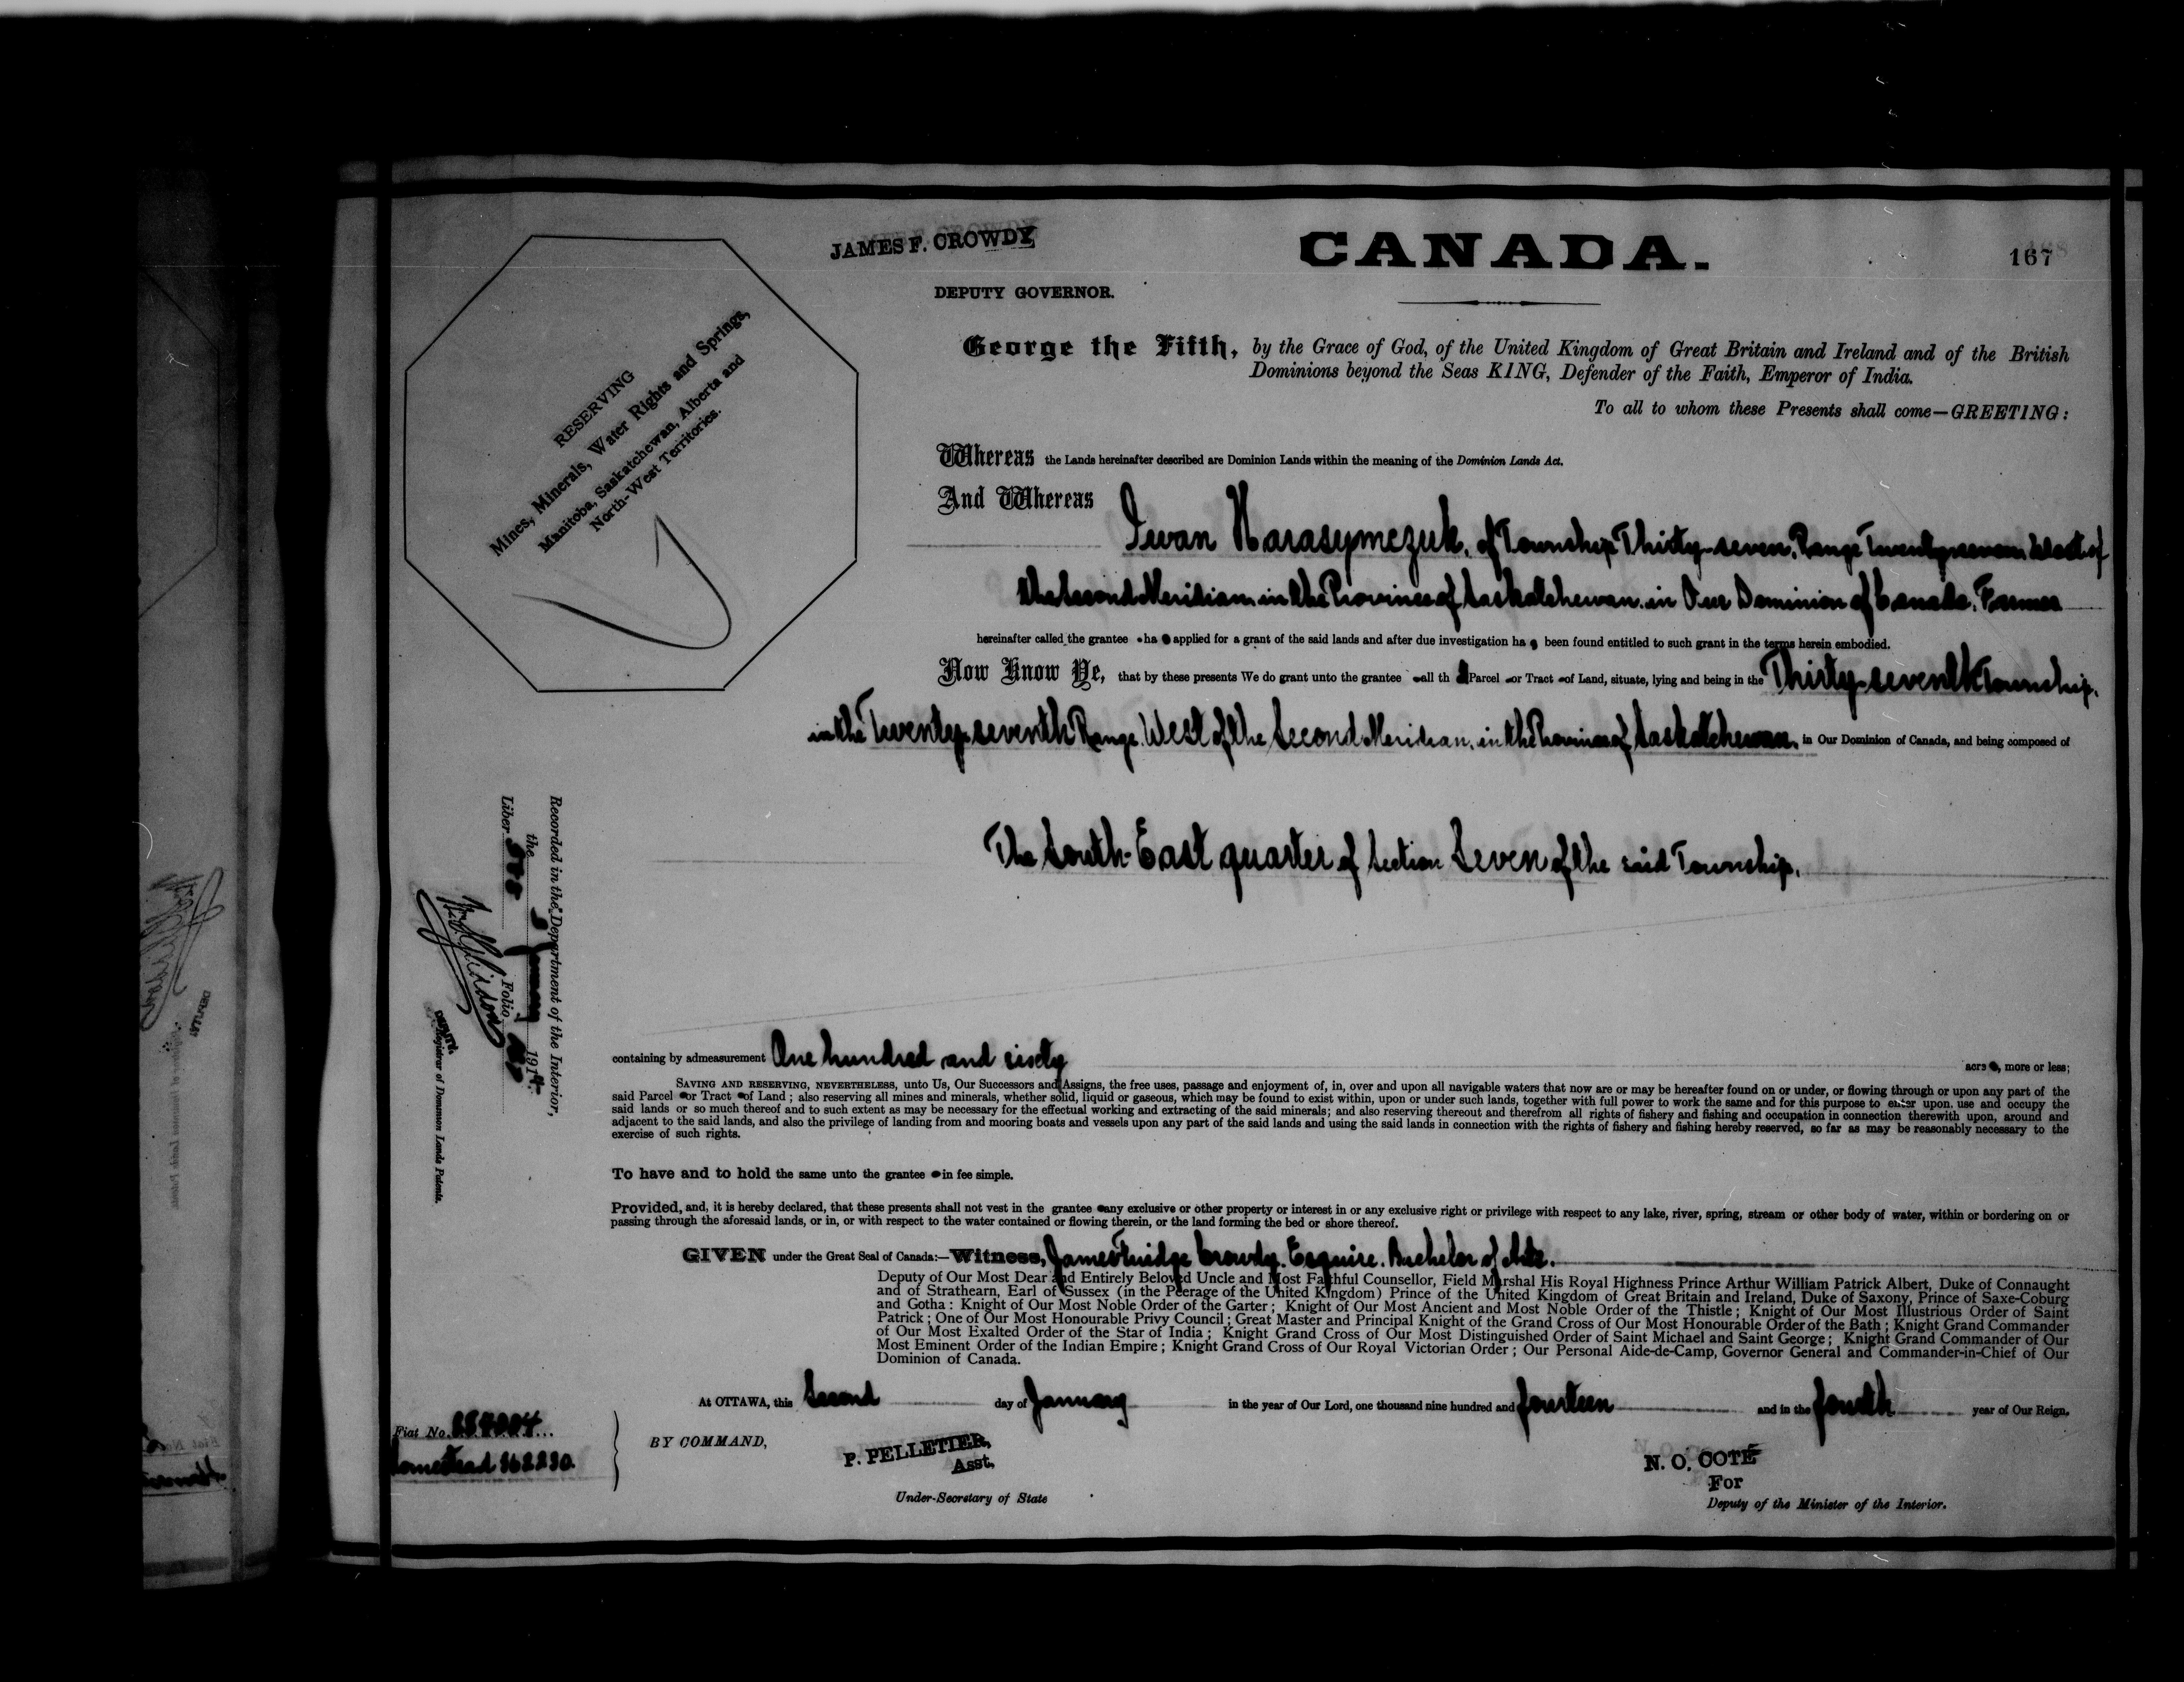 JAMES F. CROWDY
CANADA.
167
DEPUTY GOVERNOR.
RESERVING
Mines, Minerals, Water Rights and Springs,
Manitoba, Saskatchewan, Alberta and
North-West Territories.
George the Fifth, by the Grace of God, of the United Kingdom of Great Britain and Ireland and of the British
Dominions beyond the Seas KING, Defender of the Faith, Emperor of India.
To all to whom these Presents shall come—GREETING:
Whereas the Lands hereinafter described are Dominion Lands within the meaning of the Dominion Lands Act.
And Whereas
Iwan Harasymczuk, of Township Thirty-seven, Range Twenty-seven, West of
the Second Meridian, in the Province of Saskatchewan, in Our Dominion of Canada, Farmer
hereinafter called the grantee ha s applied for a grant of the said lands and after due investigation ha s been found entitled to such grant in the terms herein embodied.
Now Know Ye, that by these presents We do grant unto the grantee all th at Parcel or Tract of Land, situate, lying and being in the Thirty-seventh Township,
in the Twenty-seventh Range, West of the Second Meridian, in the Province of Saskatchewan, in Our Dominion of Canada, and being composed of
The South-East quarter of Section Seven of the said Township.
Recorded in the Department of the Interior,
the January 1914
Liber Folio
DEPUTY
Registrar of Dominion Lands Patents.
containing by admeasurement One hundred and sixty acre s, more or less;
SAVING AND RESERVING, NEVERTHELESS, unto Us, Our Successors and Assigns, the free uses, passage and enjoyment of, in, over and upon all navigable waters that now are or may be hereafter found on or under, or flowing through or upon any part of the
said Parcel or Tract of Land; also reserving all mines and minerals, whether solid, liquid or gaseous, which may be found to exist within, upon or under such lands, together with full power to work the same and for this purpose to enter upon, use and occupy the
said lands or so much thereof and to such extent as may be necessary for the effectual working and extracting of the said minerals; and also reserving thereout and therefrom all rights of fishery and fishing and occupation in connection therewith upon, around and
adjacent to the said lands, and also the privilege of landing from and mooring boats and vessels upon any part of the said lands and using the said lands in connection with the rights of fishery and fishing hereby reserved, so far as may be reasonably necessary to the
exercise of such rights.
To have and to hold the same unto the grantee in fee simple.
Provided, and, it is hereby declared, that these presents shall not vest in the grantee any exclusive or other property or interest in or any exclusive right or privilege with respect to any lake, river, spring, stream or other body of water, within or bordering on or
passing through the aforesaid lands, or in, or with respect to the water contained or flowing therein, or the land forming the bed or shore thereof.
GIVEN under the Great Seal of Canada:—Witness, James Fluidge Crowdy, Esquire, Bachelor of Arts.
Deputy of Our Most Dear and Entirely Beloved Uncle and Most Faithful Counsellor, Field Marshal His Royal Highness Prince Arthur William Patrick Albert, Duke of Connaught
and of Strathearn, Earl of Sussex (in the Peerage of the United Kingdom) Prince of the United Kingdom of Great Britain and Ireland, Duke of Saxony, Prince of Saxe-Coburg
and Gotha: Knight of Our Most Noble Order of the Garter; Knight of Our Most Ancient and Most Noble Order of the Thistle; Knight of Our Most Illustrious Order of Saint
Patrick; One of Our Most Honourable Privy Council; Great Master and Principal Knight of the Grand Cross of Our Most Honourable Order of the Bath; Knight Grand Commander
of Our Most Exalted Order of the Star of India; Knight Grand Cross of Our Most Distinguished Order of Saint Michael and Saint George; Knight Grand Commander of Our
Most Eminent Order of the Indian Empire; Knight Grand Cross of Our Royal Victorian Order; Our Personal Aide-de-Camp, Governor General and Commander-in-Chief of Our
Dominion of Canada.
At OTTAWA, this Second day of January in the year of Our Lord, one thousand nine hundred and fourteen and in the fourth year of Our Reign.
Fiat No.
Homestead
BY COMMAND,
P. PELLETIER,
Asst.
Under-Secretary of State
N. O. COTÉ
For
Deputy of the Minister of the Interior.